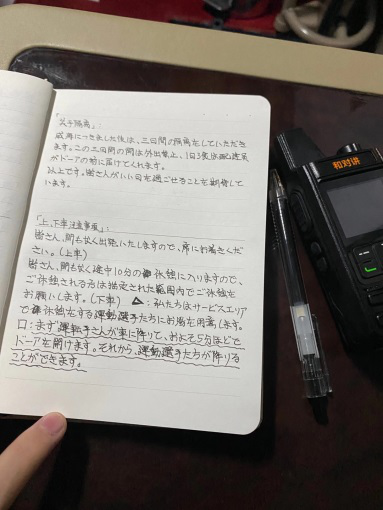 「关于隔离」
威海につきました後は、三日間の隔離をしていただき
ます。この三日間の間は外出禁止、1日3食は配達員
がドーアの前に届けてくれます。
以上です。皆さんがいい日を過ごせることを期待して
います。
「上、下车注意事项」:
皆さん、間もなく出発いたしますので、席にお着きくだ
さい。(上车)
皆さん、間もなく途中10分の休憩に入りますので、
ご休憩される方は指定された範囲内でご休憩を
お願いします。(下车) △:私たちはサービスエリア
で休憩をする運動選手たちにお湯を用意します。
口:まず運転手さんが車に降りて、およそ5分ほどで
ドーアを開けます。それから、運動選手たちが降りる
ことができます。
和对讲